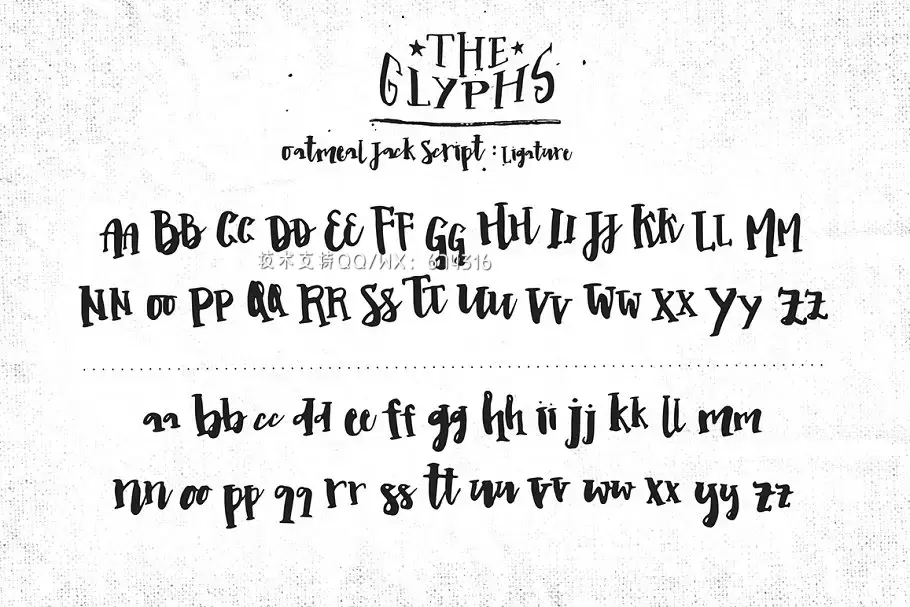 ★THE★
GLYPHS
oatmeal Jack Script : Ligature
AA BB CC DD EE FF GG HH II JJ KK LL MM
技术支持QQ/WX: 674316
NN OO PP QQ RR SS TT UU VV WW XX YY ZZ
aa bb cc dd ee ff gg hh ii jj kk ll mm
nn oo pp qq rr ss tt uu vv ww xx yy zz